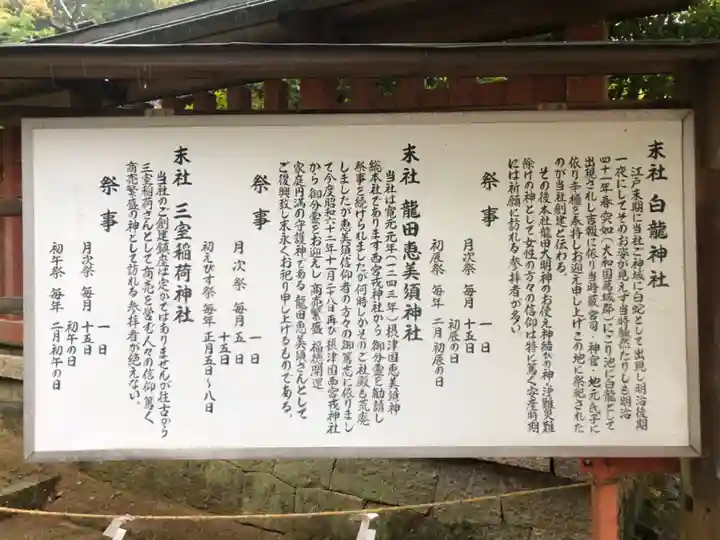 末社 白龍神社
江戸末期に当社ご神域に白蛇として出現し明治後期
一夜にしてそのお姿が見えず当時騒然たりしも明治
四十一年春突如(大和国葛城郡)にごり池に白龍として
出現されし吉報に依り当時藪宮司・神官・地元氏子に
依り辛櫃を奉持しお迎え申し上げこの地に祭祀された
のが当社創建と伝わる。
その後本社龍田大明神のお使え神結びの神・浄難災難
除けの神として女性の方々の信仰は特に篤く安産時期
には祈願に訪れる参拝者が多い
祭事
月次祭 毎月 一日
初辰の日
初辰祭 毎年 二月初辰の日
末社 龍田恵美須神社
当社は寛元元年(一二四三年)摂津国恵美須神
総本社であります西宮戎神社から御分霊を勧請し
祭事を続けられましたが何時しかよりご社殿も荒廃
しましたが恵美須信仰者の方々の御篤志に依りまし
て今度昭和六十二年十一月二十八日再び摂津国西宮戎神社
から御分霊をお迎えし 商売繁盛 福徳開運
家庭円満の守護神である 龍田恵美須さんとして
ご復興致し末永くお祀り申し上げるものである。
祭事
月次祭 毎月 一日
五日
十五日
初えびす祭 毎年 正月五日~八日
末社 三室稲荷神社
当社のご創建鎮座は定かではありませんが往古から
三室稲荷さんとして商売を営む人々の信仰篤く
商売繁盛の神として訪れる参拝者が絶えない。
祭事
月次祭 毎月 一日
十五日
初午の日
初午祭 毎年 二月初午の日